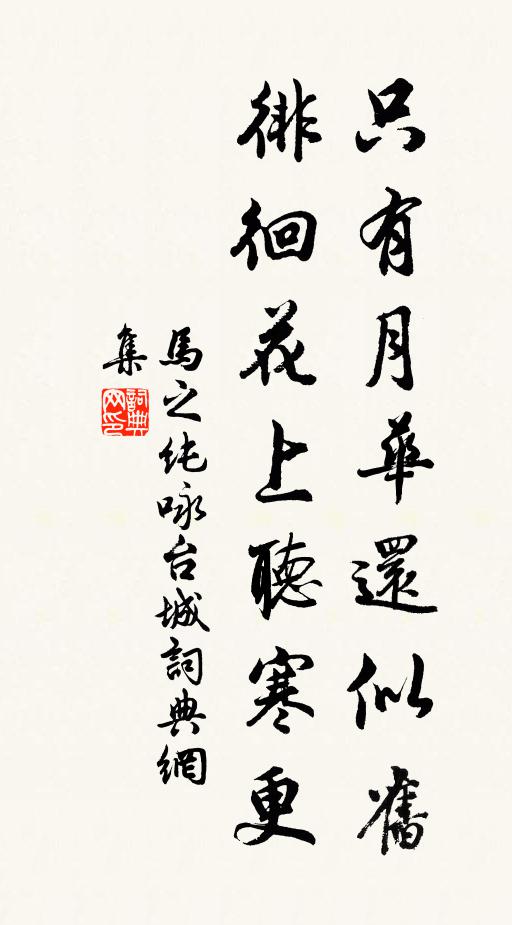 只有月華還似舊
徘徊花上聽寒更
馬之纯咏台城詞典網
集
詞典
网印